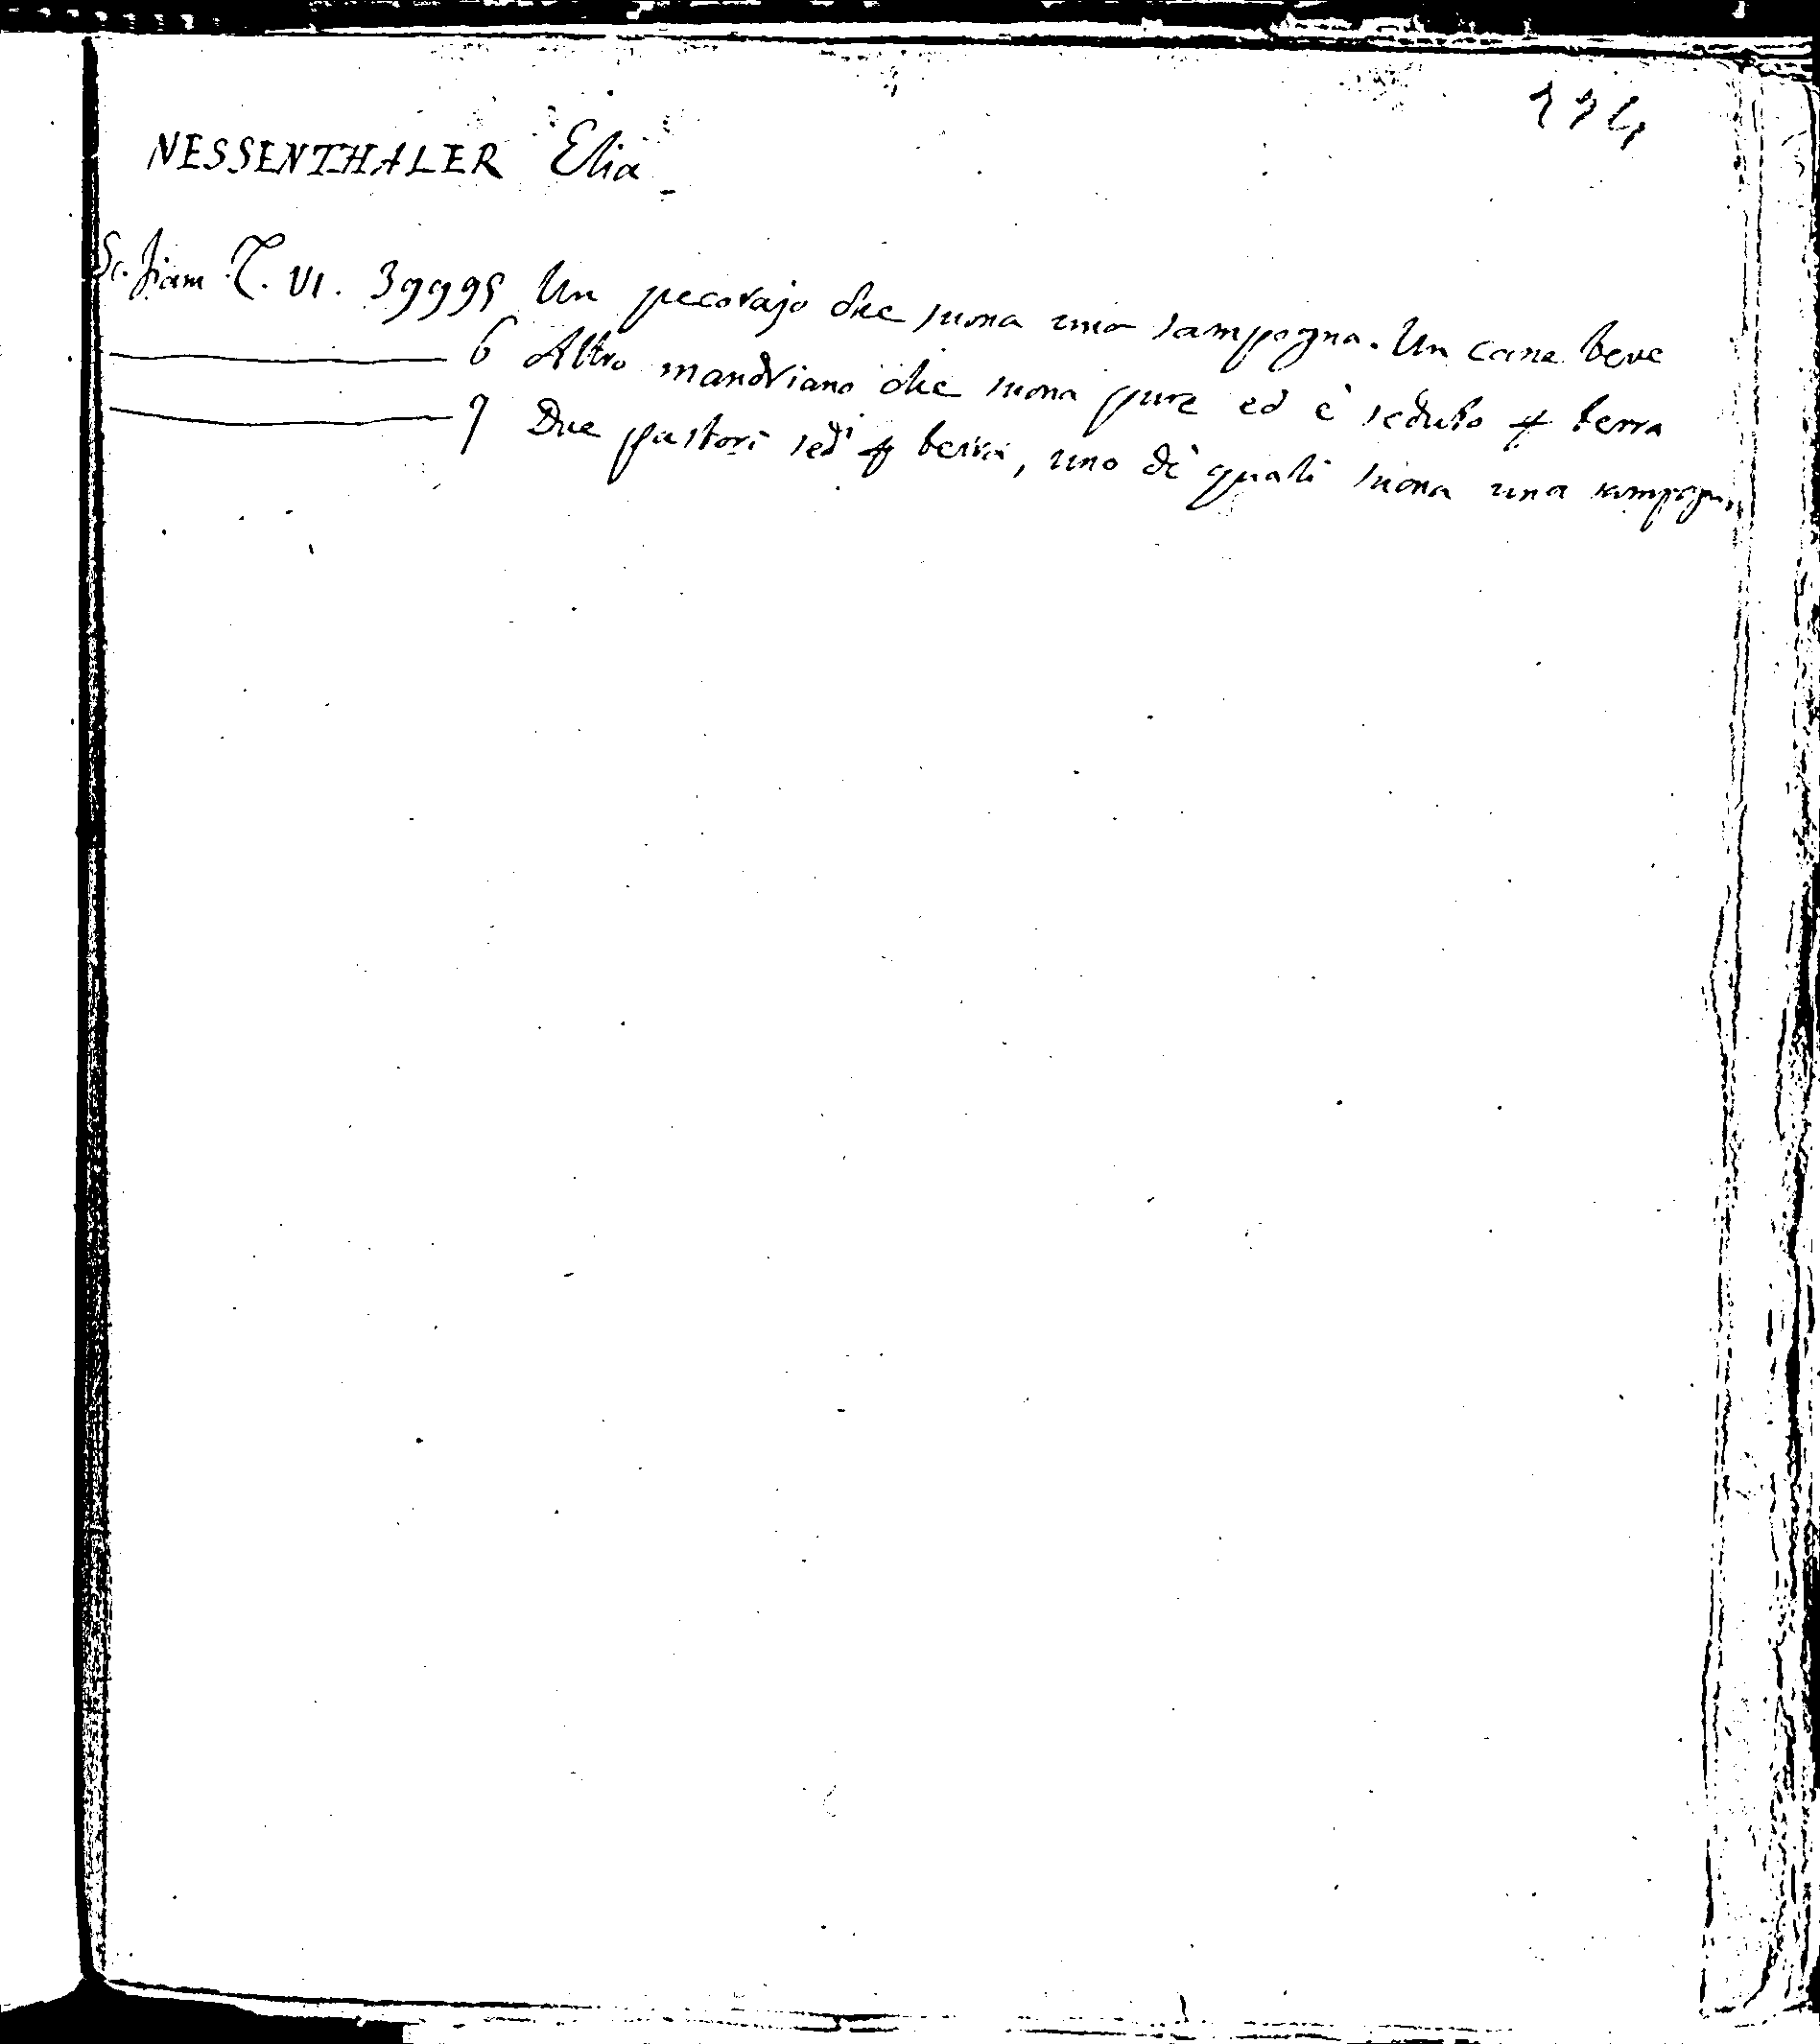 194
NESSENTHALER Elia
Sc. fiam T. VI. 39995 Un pecorajo che suona una sampogna. Un cane beve
6 Altro mandriano che suona pure ed è seduto p terra
7 Due pastori sedⁱ p terra, uno dè quali suona una sampogna